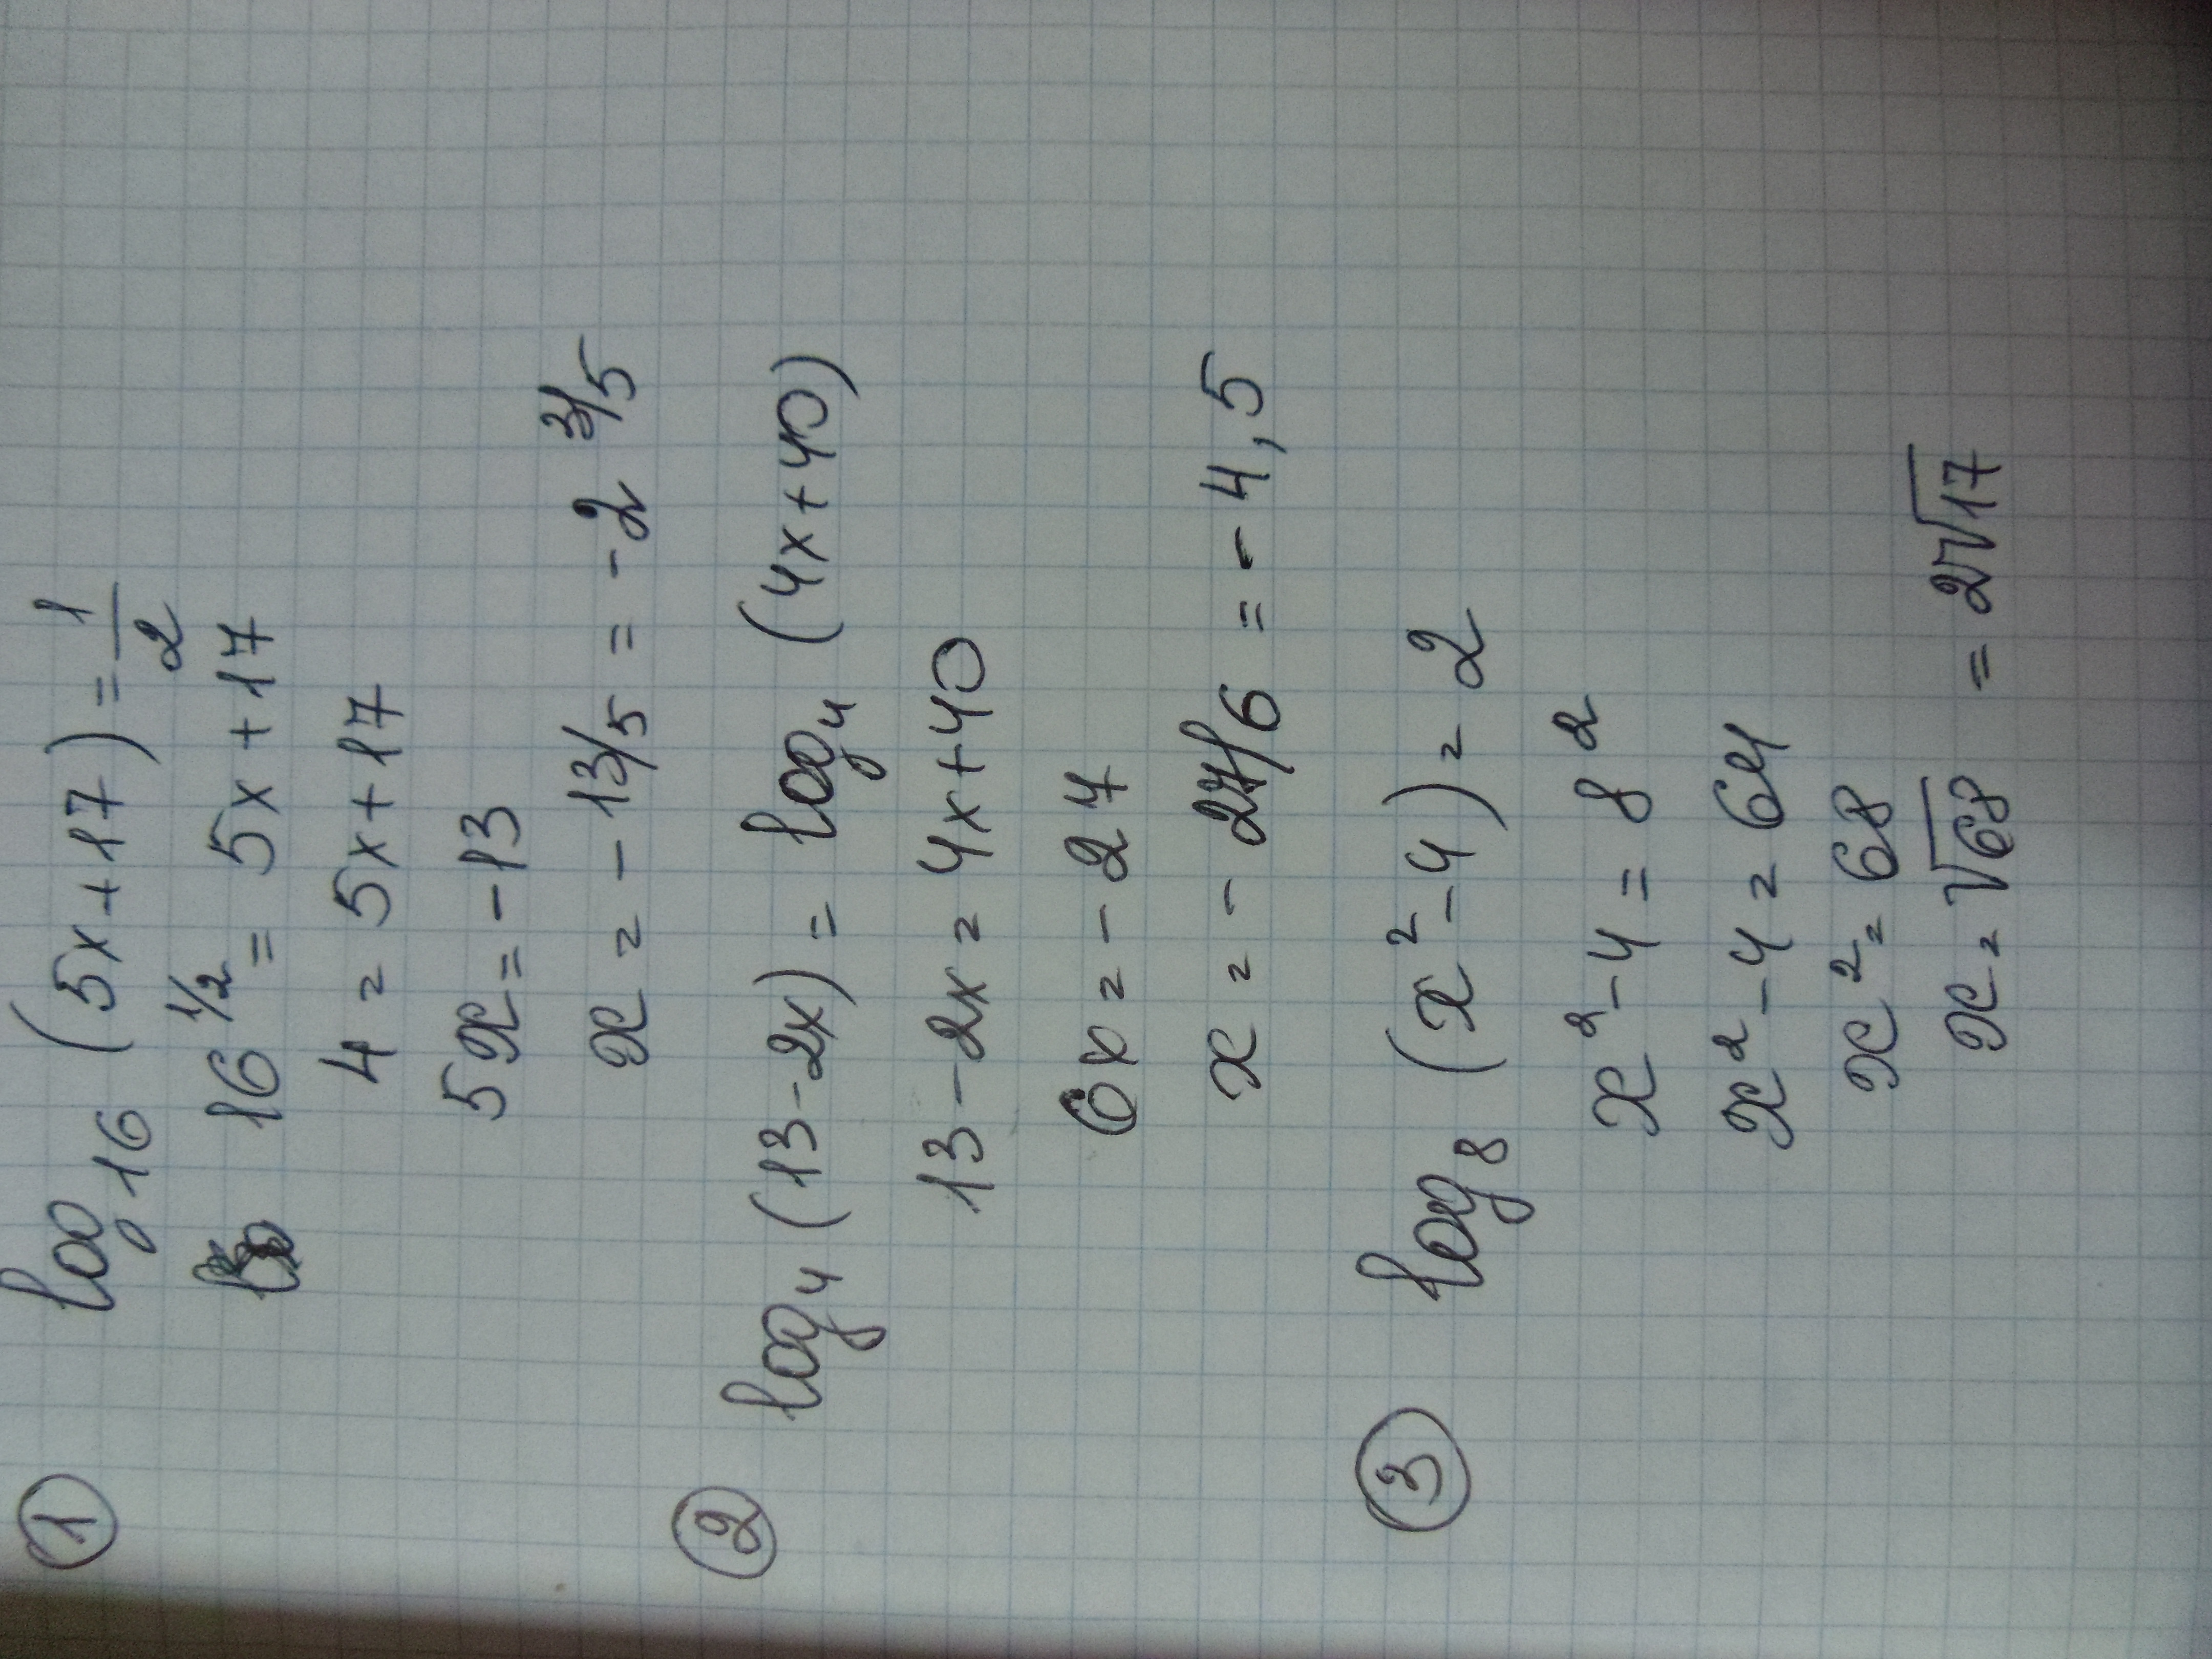 ① log₁₆ (5x+17) = 1/2
16^1/2 = 5x+17
4 = 5x+17
5x = -13
x = -13/5 = -2 3/5
② log₄(13-2x) = log₄ (4x+40)
13-2x = 4x+40
6x = -27
x = -27/6 = -4,5
③ log₈ (x²-4) = 2
x²-4 = 8²
x²-4 = 64
x² = 68
x = √68 = 2√17